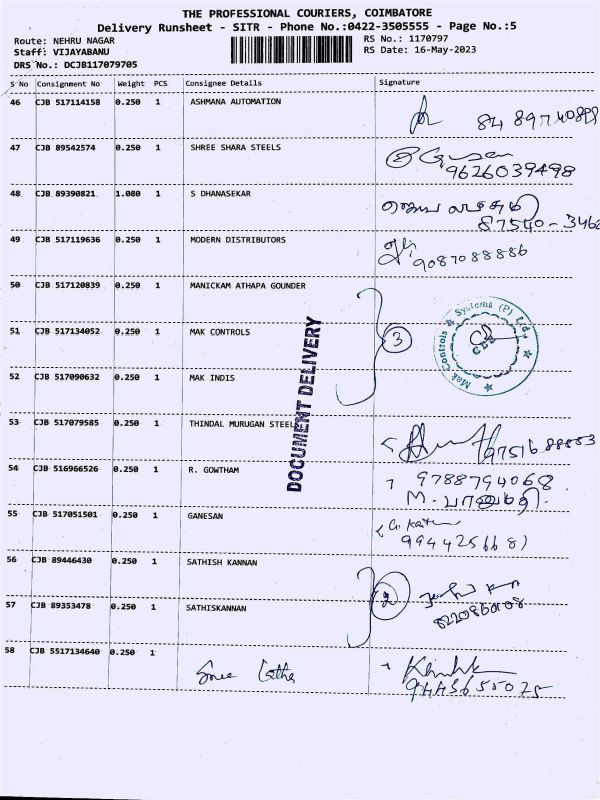 THE PROFESSIONAL COURIERS, COIMBATORE
Delivery Runsheet - SITR - Phone No.:0422-3505555 - Page No.:5
Route: NEHRU NAGAR
RS No.: 1170797
Staff: VIJAYABANU
RS Date: 16-May-2023
DRS No.: DCJB117079705
S No Consignment No Weight PCS Consignee Details Signature
46 CJB 517114158 0.250 1 ASHMANA AUTOMATION
47 CJB 89542574 0.250 1 SHREE SHARA STEELS
9626039498
48 CJB 89390821 1.080 1 S DHANASEKAR
87540-3462
49 CJB 517119636 0.250 1 MODERN DISTRIBUTORS
9087088886
50 CJB 517120839 0.250 1 MANICKAM ATHAPA GOUNDER
51 CJB 517134052 0.250 1 MAK CONTROLS 3
Mak Controls & Systems (P) Ltd.,
52 CJB 517090632 0.250 1 MAK INDIS
DOCUMENT DELIVERY
53 CJB 517079585 0.250 1 THINDAL MURUGAN STEEL
9751688883
54 CJB 516966526 0.250 1 R. GOWTHAM 9788794068
M. பானுமதி
55 CJB 517051501 0.250 1 GANESAN
9944256681
56 CJB 89446430 0.250 1 SATHISH KANNAN
2
57 CJB 89353478 0.250 1 SATHISKANNAN
58 CJB 5517134640 0.250 1 Sree Latha
9443655075